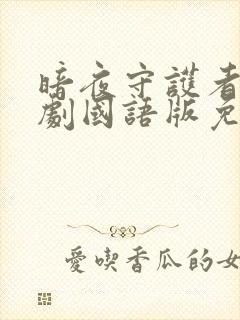 暗夜守護者
劇國語版免
愛喫香瓜的女